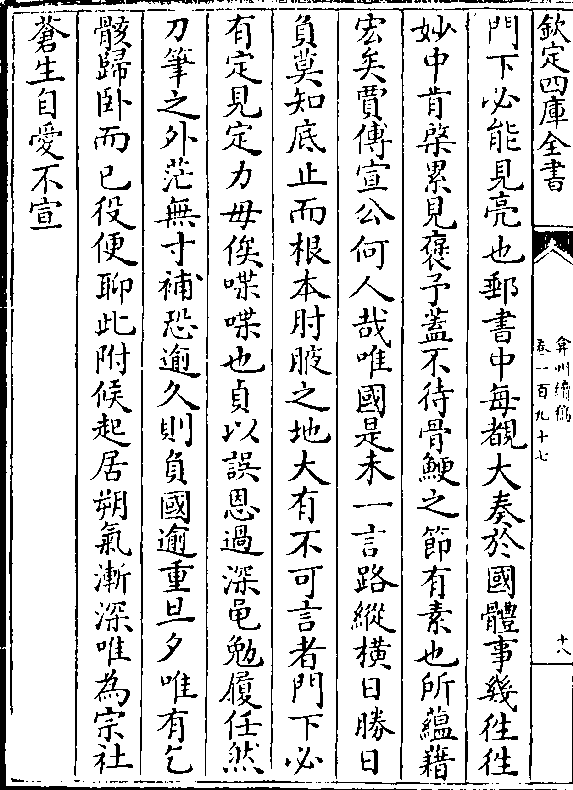 欽定四庫全書
弇州續稿
卷一百九十七
十八
門下必能見亮也郵書中每覩大奏於國體事幾往往
妙中肯綮累見褒予蓋不待骨鯁之節有素也所蘊藉
宏矣賈傅宣公何人哉唯國是未一言路縱橫日勝日
負莫知底止而根本肘腋之地大有不可言者門下必
有定見定力毋俟喋喋也貞以誤恩過深黽勉履任然
刀筆之外茫無寸補恐逾久則負國逾重旦夕唯有乞
骸歸卧而已役便聊此附候起居朔氣漸深唯為宗社
蒼生自愛不宣